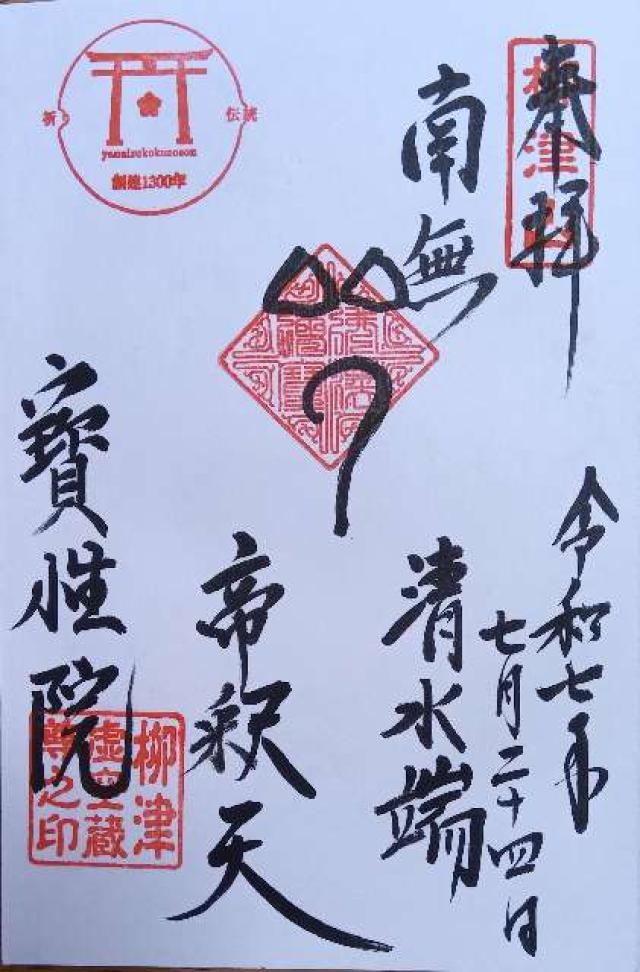 奉拝
柳津
令和七年
七月二十四日
南無
清水端
帝釈天
寳性院
柳津
虚空蔵
尊之印
祈り
伝統
yanaizukokuzoson
創建1300年